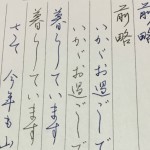 前略
前略
いかゞお過ごしで
いかゞお過ごしで
暮しています
暮しています
さて 今年も山